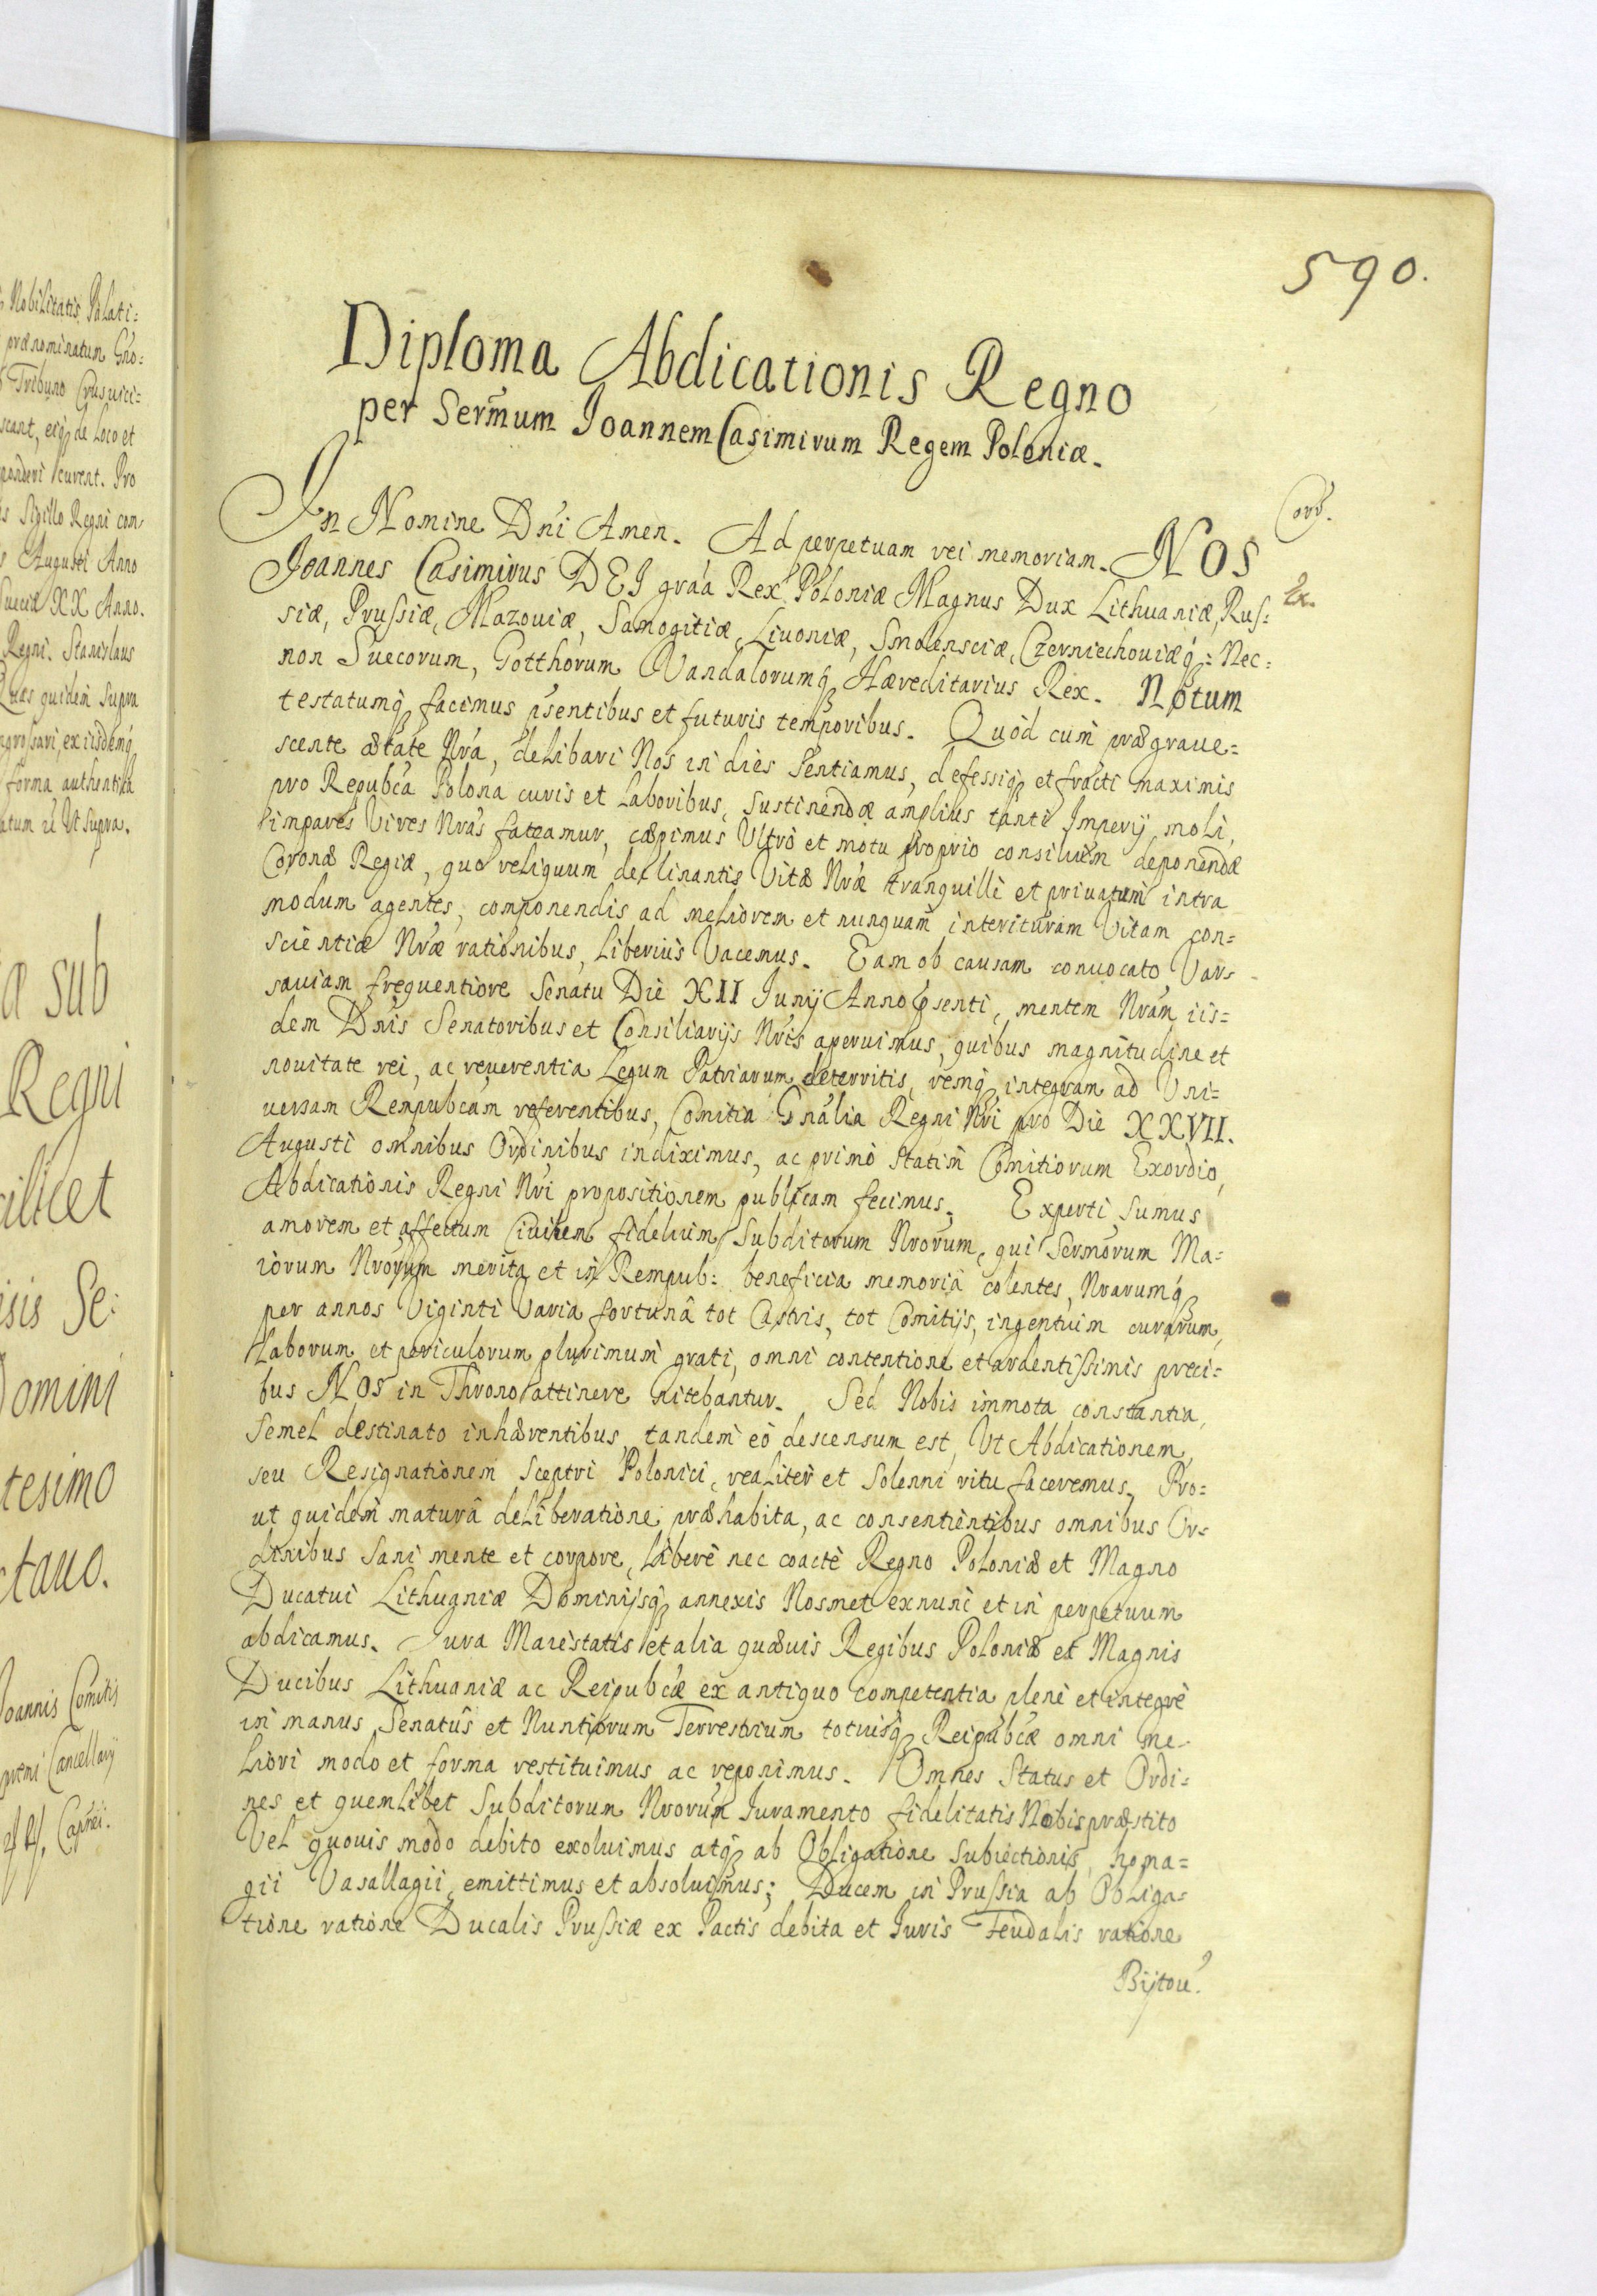 Nobilitatis Palati=
prænominatum Gño=
Tribuno Crusuici=
scant, eiq; de Loco et
ponderi curent. Pro
Sigillo Regni com
Augusti Anno
Sueciæ XX Anno.
Regni. Stanislaus
Quas quidem supra
ingrossari, ex iisdemq;
forma authentica
Ut Supra.
a sub
Regni
cilicet
Se:
Domini
tesimo
ctauo.
Joannis Comitis
Cancellarij
Capnei.
590.
Diploma Abdicationis Regno
per Sermum Joannem Casimirum Regem Poloniæ.
Cord.
In Nomine Dñi Amen. Ad perpetuam rei memoriam. NOS
Ex.
Joannes Casimirus DEI graã Rex Poloniæ Magnus Dux Lithuaniæ, Rus=
siæ, Prussiæ, Mazouiæ, Samogitiæ, Liuoniæ, Smolensciæ, Czerniechouiæq; = Nec=
non Suecorum, Gotthorum Vandalorumq; Hæreditarius Rex. Notum
testatumq; facimus pñsentibus et futuris temporibus. Quod cum prægraue=
scente ætate Nrã, delibari Nos in dies sentiamus, defessiq; et fracti maximis
pro Repubcã Polona curis et laboribus, sustinendæ amplius tanti Imperij moli,
impares Vires Nrãs fateamur, cæpimus Ultrò et motu proprio consilium deponendæ
Coronæ Regiæ, quo reliquum declinantis Vitæ Nræ tranquille et priuatum intra
modum agentes, componendis ad meliorem et nunquam interituram Vitam con=
scientiæ Nræ rationibus, liberius Vacemus. Eam ob causam conuocato Var=
sauiam frequentiore Senatu Die XII Junij Anno pñsenti, mentem Nrãm iis=
dem Dñis Senatoribus et Consiliarijs Nris aperuimus, quibus magnitudine et
nouitate rei, ac reuerentia Legum Patriarum deterritis, remq; integram ad Vni=
uersam Rempubcam referentibus, Comitia Gñalia Regni Nri pro Die XXVII.
Augusti omnibus Ordinibus indiximus, ac primo statim Comitiorum Exordio,
Abdicationis Regni Nri propositionem publicam fecimus. Experti Sumus
amorem et affectum Ciuilem fidelium Subditorum Nrorum, qui Sermorum Ma=
iorum Nrorum merita et in Rempub: beneficia memoriâ colentes, Nrarumq;
per annos Viginti Varia fortunâ tot Castris, tot Comitijs, ingentium curarum,
Laborum et periculorum plurimum grati, omni contentione et ardentissimis preci=
bus NOS in Throno attinere nitebantur. Sed Nobis immota constantia,
semel destinato inhærentibus, tandem eò descensum est, Ut Abdicationem
seu Resignationem Sceptri Polonici, realiter et Solenni ritu faceremus, Pro=
ut quidem maturâ deliberatione præhabita, ac consentientibus omnibus Or=
dinibus sani mente et corpore, liberè nec coactè Regno Poloniæ et Magno
Ducatui Lithuaniæ Dominijsq; annexis Nosmet ex nunc et in perpetuum
abdicamus. Jura Maiestatis et alia quæuis Regibus Poloniæ et Magnis
Ducibus Lithuaniæ ac Reipubcæ ex antiquo competentia plene et integrè
in manus Senatûs et Nuntiorum Terrestrium totiusq; Reipubcæ omni me=
liori modo et forma restituimus ac reponimus. Omnes Status et Ordi=
nes et quemlibet Subditorum Nrorum Juramento fidelitatis Nobis præstito
Vel quouis modo debito exoluimus atq; ab Obligatione Subiectionis, homa=
gii Vasallagii, emittimus et absoluimus; Ducem in Prussia ab Obliga=
tione ratione Ducalis Prussiæ ex Pactis debita et Juris Feudalis ratione
Bijtou.